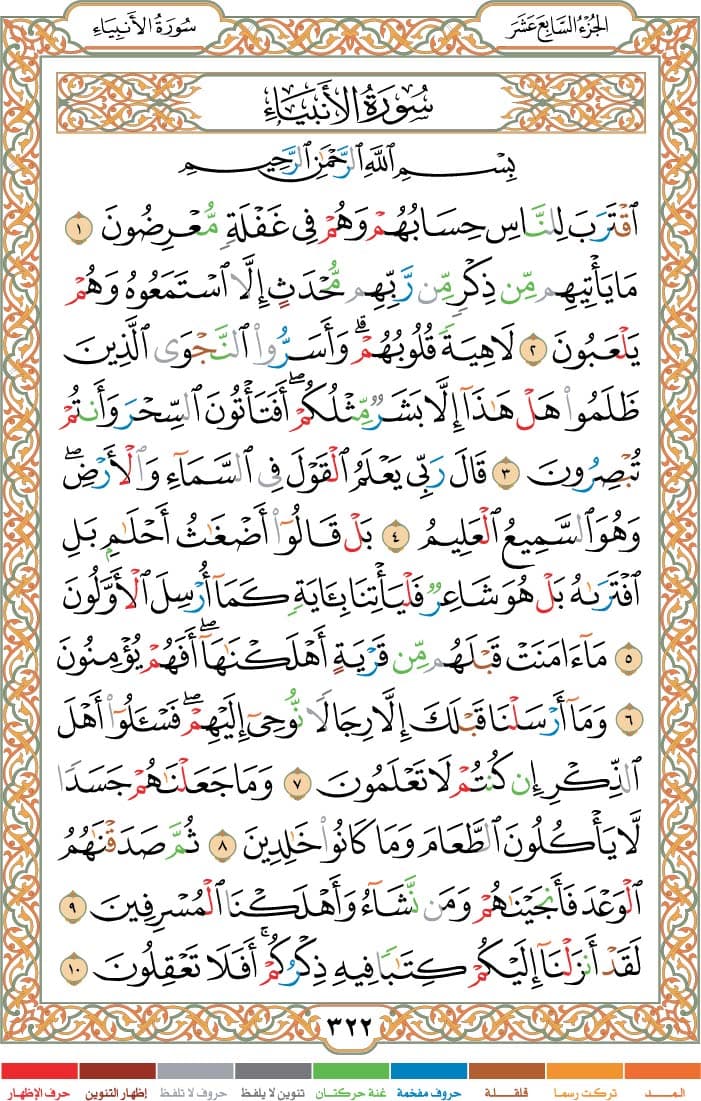 الجزء السابع عشر
سورة الأنبياء
سُورَةُ الأَنبِيَاءِ
بِسْمِ ٱللَّهِ ٱلرَّحْمَٰنِ ٱلرَّحِيمِ
ٱقْتَرَبَ لِلنَّاسِ حِسَابُهُمْ وَهُمْ فِى غَفْلَةٍ مُّعْرِضُونَ ١
مَا يَأْتِيهِم مِّن ذِكْرٍ مِّن رَّبِّهِم مُّحْدَثٍ إِلَّا ٱسْتَمَعُوهُ وَهُمْ
يَلْعَبُونَ ٢ لَاهِيَةً قُلُوبُهُمْ ۗ وَأَسَرُّوا۟ ٱلنَّجْوَى ٱلَّذِينَ
ظَلَمُوا۟ هَلْ هَٰذَآ إِلَّا بَشَرٌ مِّثْلُكُمْ ۖ أَفَتَأْتُونَ ٱلسِّحْرَ وَأَنتُمْ
تُبْصِرُونَ ٣ قَالَ رَبِّى يَعْلَمُ ٱلْقَوْلَ فِى ٱلسَّمَآءِ وَٱلْأَرْضِ ۖ
وَهُوَ ٱلسَّمِيعُ ٱلْعَلِيمُ ٤ بَلْ قَالُوٓا۟ أَضْغَٰثُ أَحْلَٰمٍۭ بَلِ
ٱفْتَرَىٰهُ بَلْ هُوَ شَاعِرٌ فَلْيَأْتِنَا بِـَٔايَةٍ كَمَآ أُرْسِلَ ٱلْأَوَّلُونَ
٥ مَآ ءَامَنَتْ قَبْلَهُم مِّن قَرْيَةٍ أَهْلَكْنَٰهَآ ۖ أَفَهُمْ يُؤْمِنُونَ
٦ وَمَآ أَرْسَلْنَا قَبْلَكَ إِلَّا رِجَالًا نُّوحِىٓ إِلَيْهِمْ ۖ فَسْـَٔلُوٓا۟ أَهْلَ
ٱلذِّكْرِ إِن كُنتُمْ لَا تَعْلَمُونَ ٧ وَمَا جَعَلْنَٰهُمْ جَسَدًا
لَّا يَأْكُلُونَ ٱلطَّعَامَ وَمَا كَانُوا۟ خَٰلِدِينَ ٨ ثُمَّ صَدَقْنَٰهُمُ
ٱلْوَعْدَ فَأَنجَيْنَٰهُمْ وَمَن نَّشَآءُ وَأَهْلَكْنَا ٱلْمُسْرِفِينَ ٩
لَقَدْ أَنزَلْنَآ إِلَيْكُمْ كِتَٰبًا فِيهِ ذِكْرُكُمْ ۖ أَفَلَا تَعْقِلُونَ ١٠
٣٢٢
المـــد تركت رسما قلقـلة حروف مفخمة غنة حركتان تنوين لا يلفظ حروف لا تلفظ إظهار التنوين حرف الإظهار